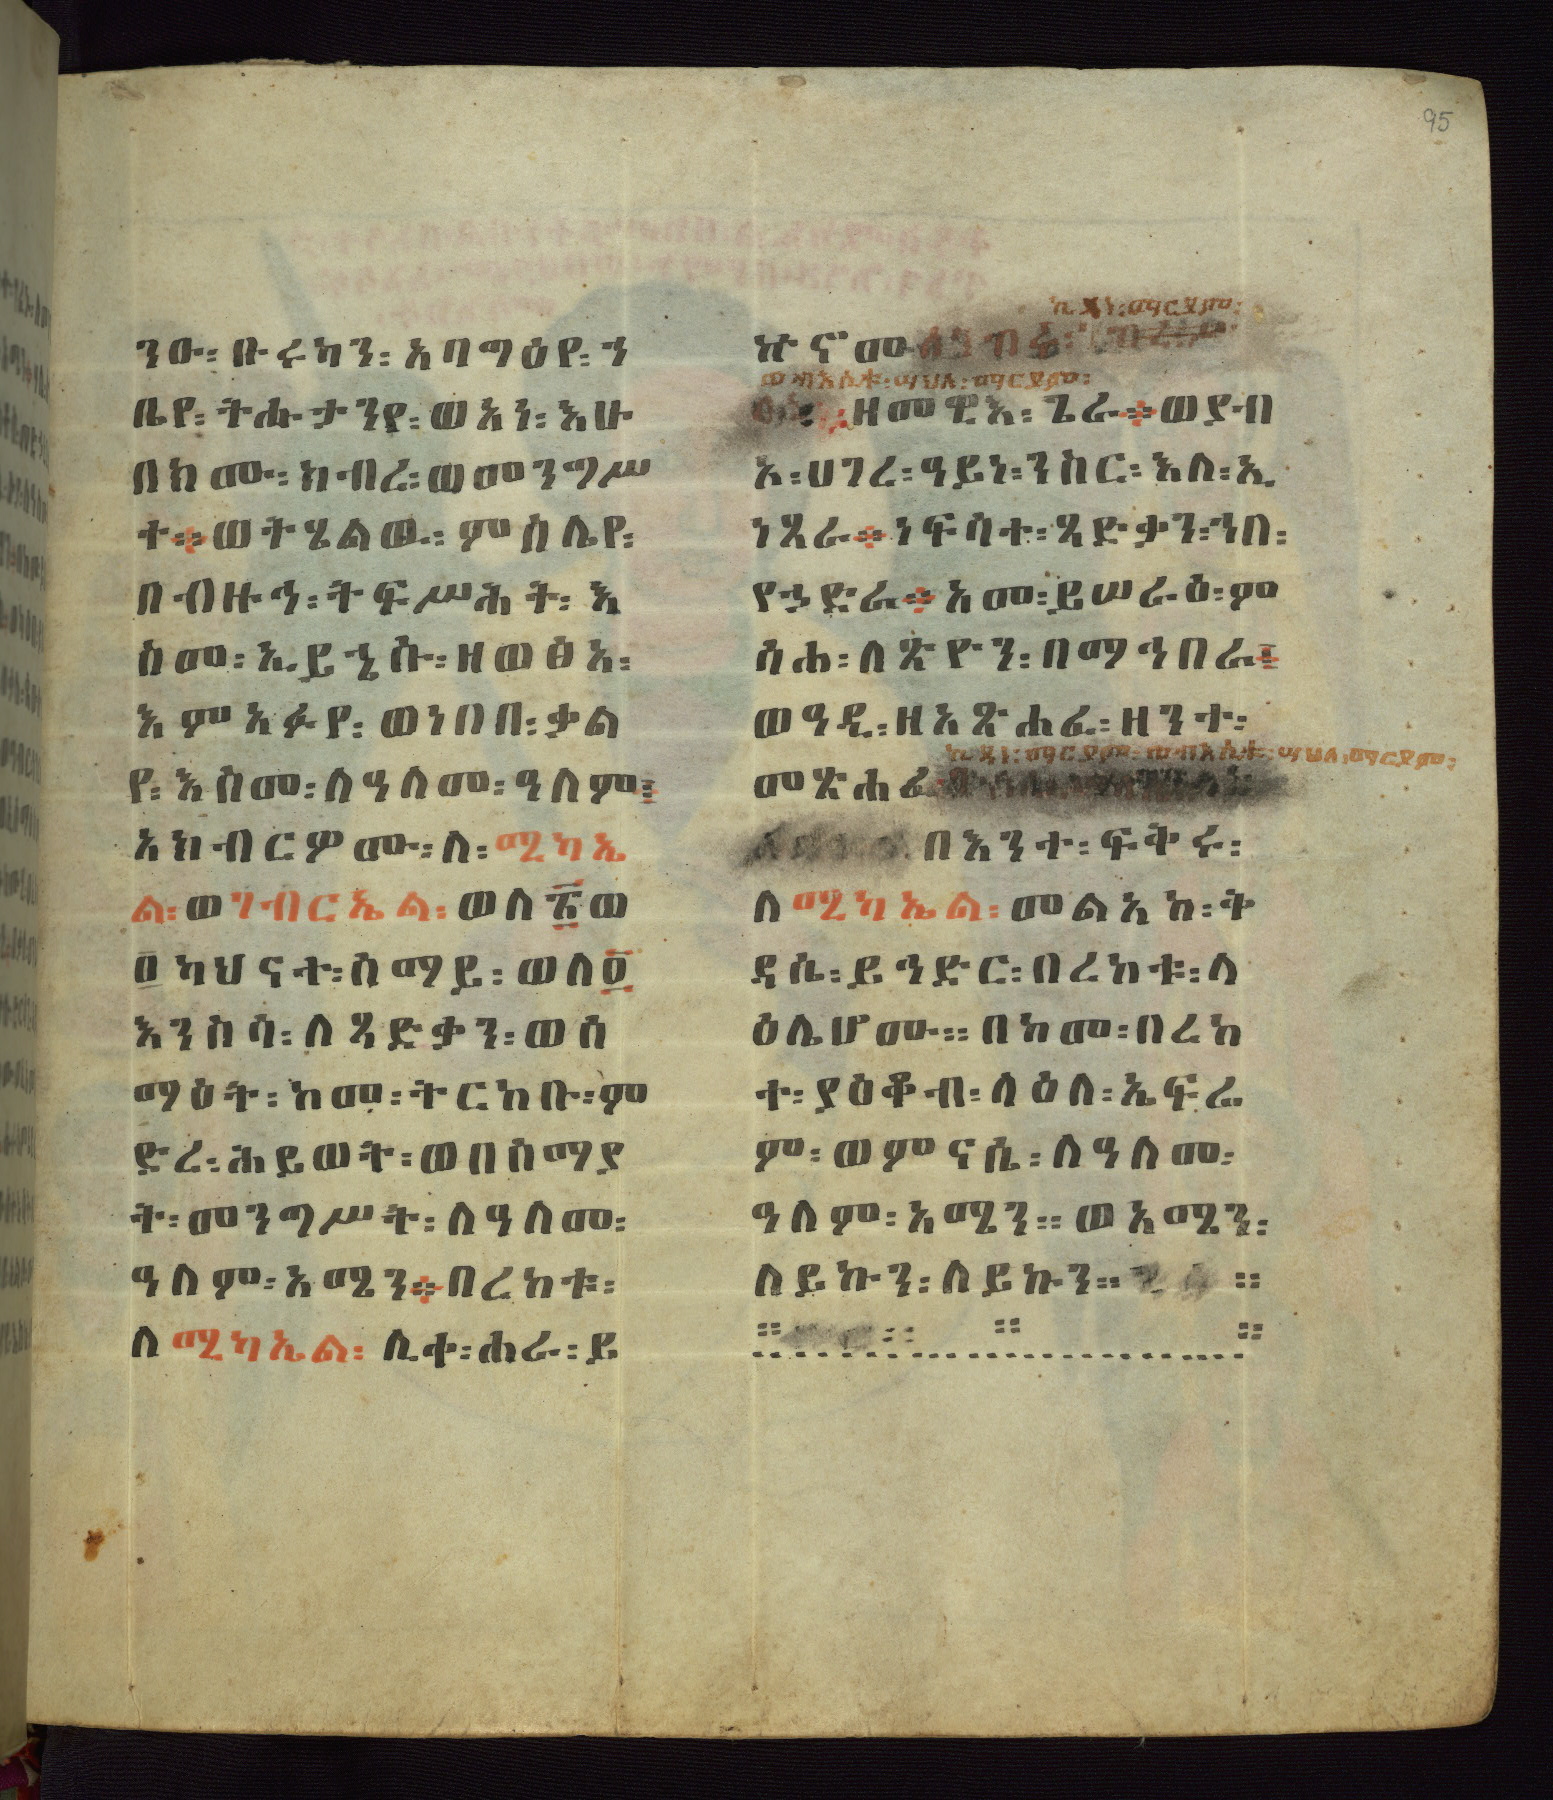 95
ንዑ፡ ቡሩካን፡ አባግዕየ፡ ን
ቤየ፡ ትሑታንየ፡ ወእነ፡ እሁ
በክሙ፡ ክብረ፡ ወመንግሥ
ተ። ወትሄልው፡ ምስሌየ፡
በብዙኅ፡ ትፍሥሕት፡ እ
ስመ፡ ኢይኄሱ፡ ዘወፅአ፡
እምአፉየ፡ ወነበበ፡ ቃል
የ፡ እስመ፡ ለዓለመ፡ ዓለም።
አክብርዎሙ፡ ለ፡ ሚካኤ
ል፡ ወገብርኤል፡ ወለ፳ወ
፬ካህናተ፡ ሰማይ፡ ወለ፬
እንስሳ፡ ለጻድቃን፡ ወሰ
ማዕት፡ ከመ፡ ትርከቡ፡ ም
ድረ፡ ሕይወት፡ ወበሰማያ
ት፡ መንግሥት፡ ለዓለመ፡
ዓለም፡ አሜን። በረከቱ፡
ለሚካኤል፡ ሊቀ፡ ሐራ፡ ይ
ኪዳነ፡ ማርያም፡
ኵኖሙ
ወብእሲቱ፡ ሣህለ፡ ማርያም፡
ዘመዊእ፡ ጌራ። ወያብ
እ፡ ሀገረ፡ ዓይነ፡ ንስር፡ እለ፡ ኢ
ነጸራ። ነፍሳተ፡ ጻድቃን፡ ኀበ፡
የኃድራ። አመ፡ ይሠራዕ፡ ም
ሳሐ፡ ለጽዮን፡ በማኅበራ።
ወዓዲ፡ ዘአጽሐፈ፡ ዘንተ፡
ኪዳነ፡ ማርያም፡ ወብእሲቱ፡ ሣህለ፡ ማርያም፡
መጽሐፈ
በእንተ፡ ፍቅሩ፡
ለሚካኤል፡ መልአከ፡ ቅ
ዳሴ፡ ይኅድር፡ በረከቱ፡ ላ
ዕሌሆሙ። በከመ፡ በረከ
ተ፡ ያዕቆብ፡ ላዕለ፡ ኤፍሬ
ም፡ ወምናሴ፡ ለዓለመ፡
ዓለም፡ አሜን። ወአሜን፡
ለይኩን፡ ለይኩን። ።
። ። ። ።